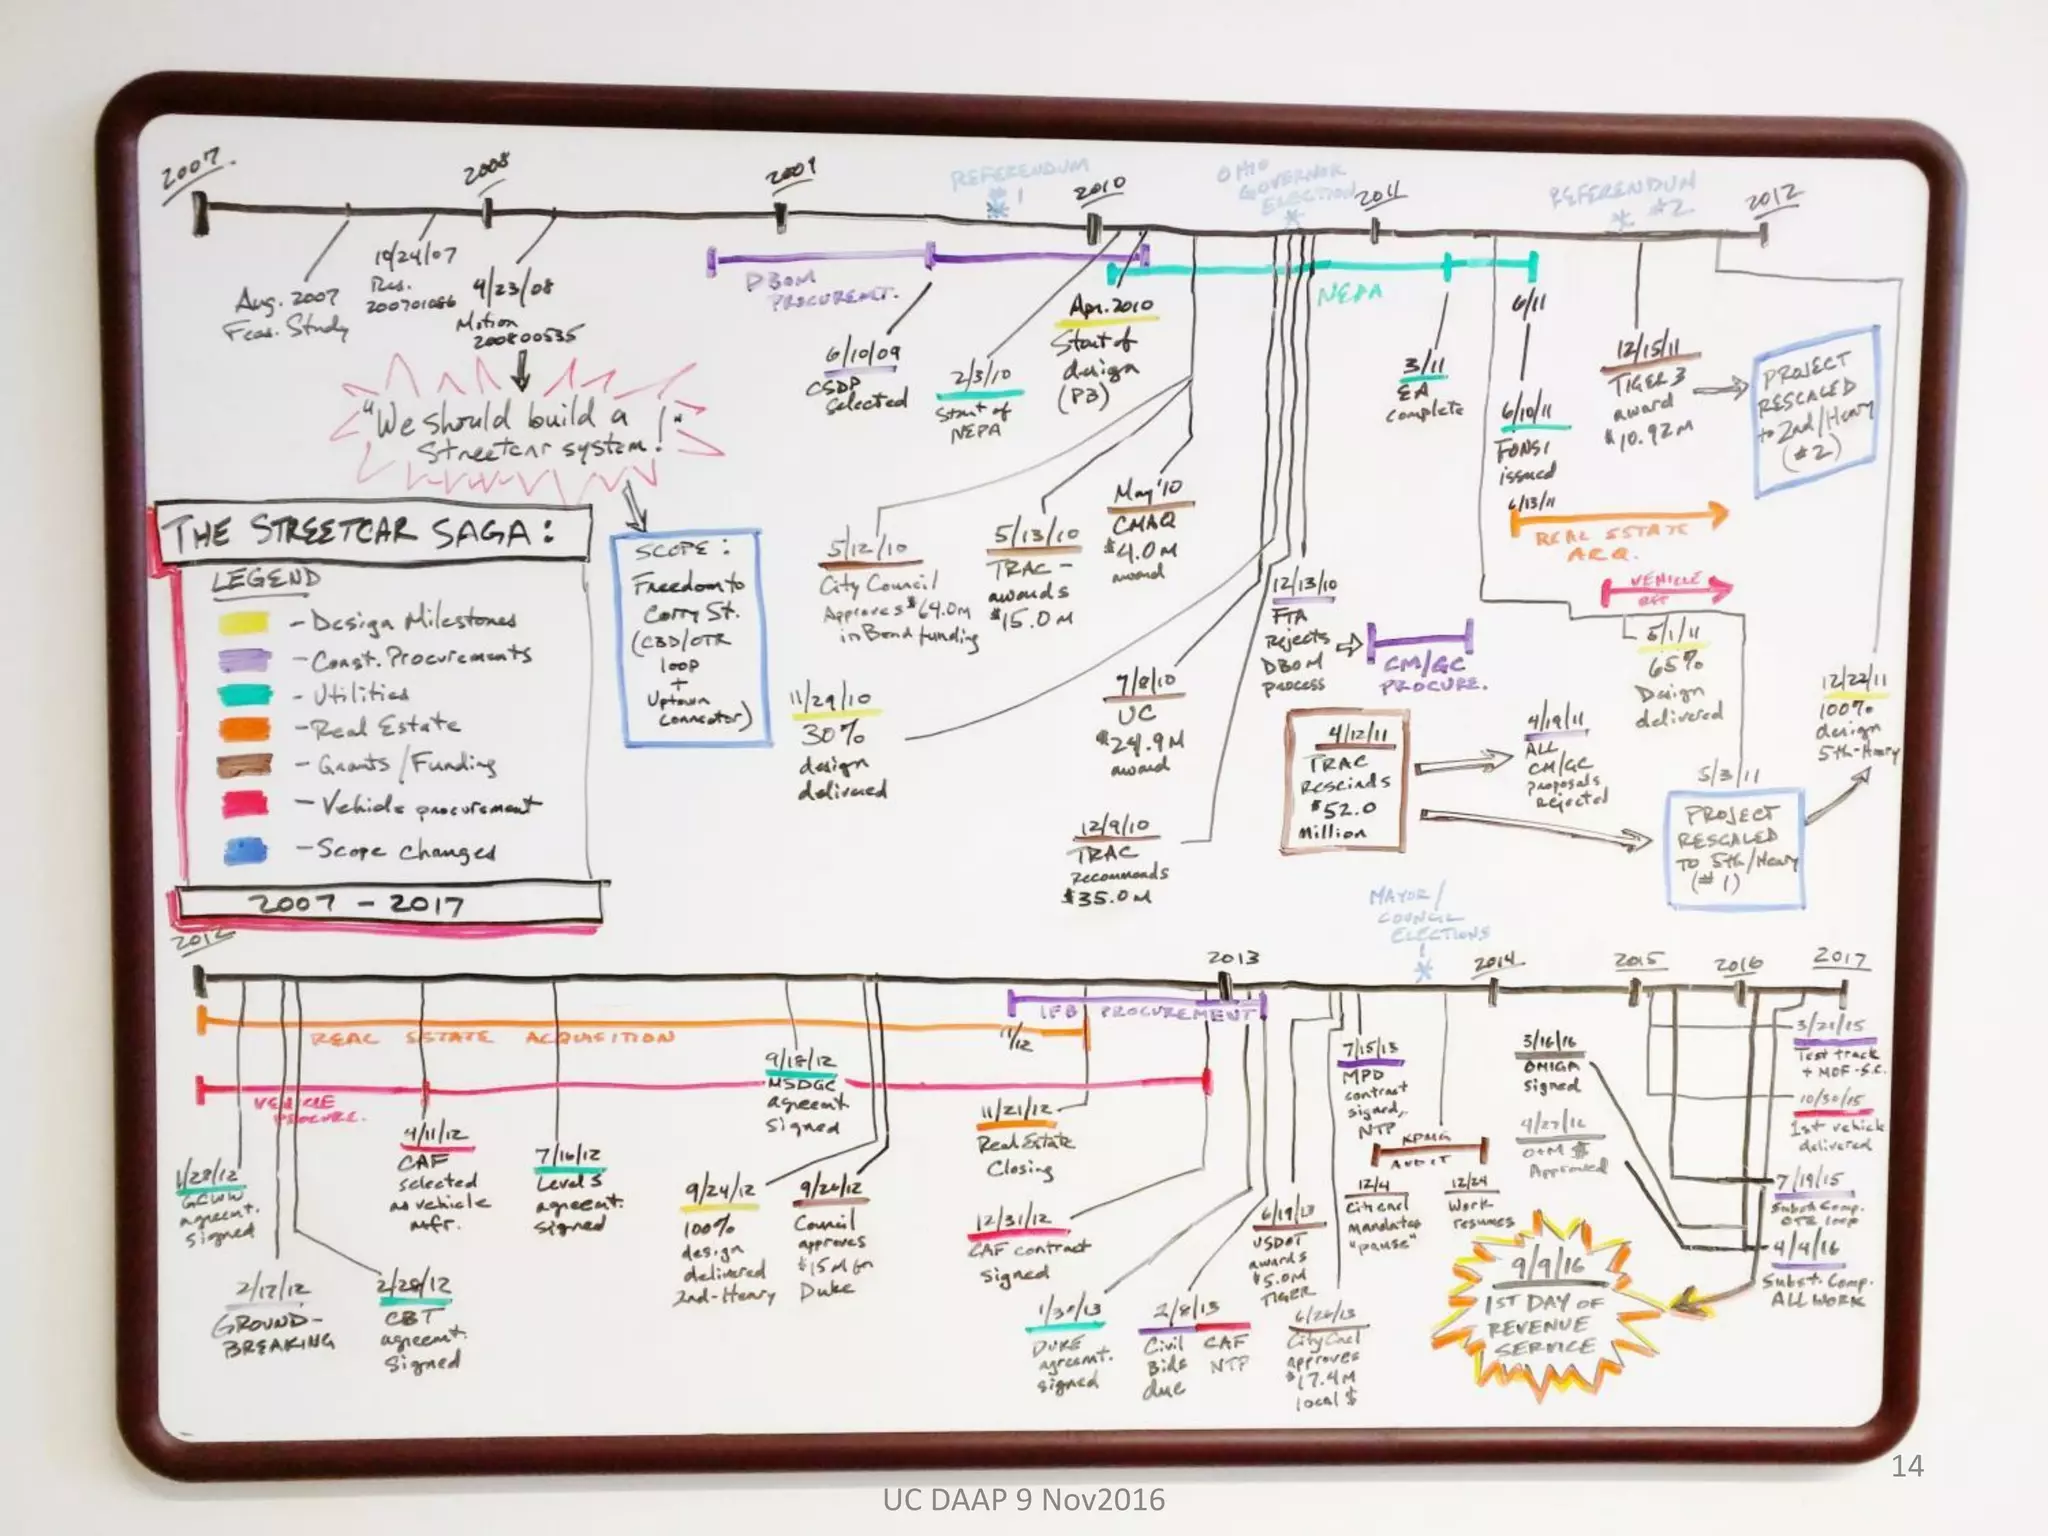 2007
2008
2009
REFERENDUM
1
2010
OHIO
GOVERNOR
ELECTION
2011
REFERENDUM
#2
2012
Aug. 2007
Feas. Study
10/24/07
Res.
200701086
4/23/08
Motion
200800535
"We should build a
Streetcar system!"
DBOM
PROCUREMT.
6/10/09
CSDP
Selected
2/3/10
Start of
NEPA
Apr. 2010
Start of
design
(PB)
NEPA
3/11
EA
complete
6/11
6/10/11
FONSI
issued
6/13/11
REAL ESTATE
ACQ.
VEHICLE
12/15/11
TIGER 3
award
$10.92M
PROJECT
RESCALED
to 2nd/Henry
(#2)
THE STREETCAR SAGA:
LEGEND
- Design Milestones
- Const. Procurements
- Utilities
- Real Estate
- Grants/Funding
- Vehicle procurement
- Scope changes
2007 - 2017
SCOPE:
Freedom to
Corry St.
(CBD/OTR
loop
+
Uptown
connector)
5/12/10
City Council
Approves $64.0M
in Bond funding
5/13/10
TRAC -
awards
$15.0M
May '10
CMAQ
$4.0M
award
11/29/10
30%
design
delivered
7/8/10
UC
$24.9M
award
12/9/10
TRAC
Recommends
$35.0M
12/13/10
FTA
Rejects
DBOM
process
CM/GC
PROCURE.
4/12/11
TRAC
Rescinds
$52.0
Million
4/19/11
ALL
CM/GC
proposals
Rejected
5/1/11
65%
Design
delivered
5/3/11
PROJECT
RESCALED
TO 5th/Henry
(#1)
12/22/11
100%
design
5th-Henry
2012
2013
MAYOR/
COUNCIL
ELECTIONS
2014
2015
2016
2017
REAL ESTATE ACQUISITION
11/12
IFB PROCUREMENT
VEHICLE
PROCURE.
1/28/12
GCWW
agreemt.
signed
2/17/12
GROUND-
BREAKING
2/28/12
CBT
agreemt.
Signed
4/11/12
CAF
selected
as vehicle
mfr.
7/16/12
Level 3
agreemt.
signed
9/18/12
MSDGC
agreemt
signed
9/24/12
100%
design
delivered
2nd-Henry
9/26/12
Council
approves
$15M for
Duke
11/21/12
Real Estate
Closing
12/31/12
CAF contract
signed
1/30/13
DUKE
agreemt.
signed
2/8/13
Civil
Bids
due
CAF
NTP
6/19/13
USDOT
awards
$5.0M
TIGER
6/26/13
City Cncl
approves
$17.4M
local $
7/15/13
MPD
contract
signed,
NTP
KPMG
AUDIT
12/4
Citi cncl
mandates
"pause"
12/24
Work
resumes
3/16/16
OMIGA
signed
4/27/16
O+M $
Approved
3/21/15
Test track
+ MOF - S.C.
10/30/15
1st vehicle
delivered
7/19/15
Subst. Comp.
OTR loop
4/4/16
Subst. Comp.
ALL WORK
9/9/16
1ST DAY OF
REVENUE
SERVICE
14
UC DAAP 9 Nov2016